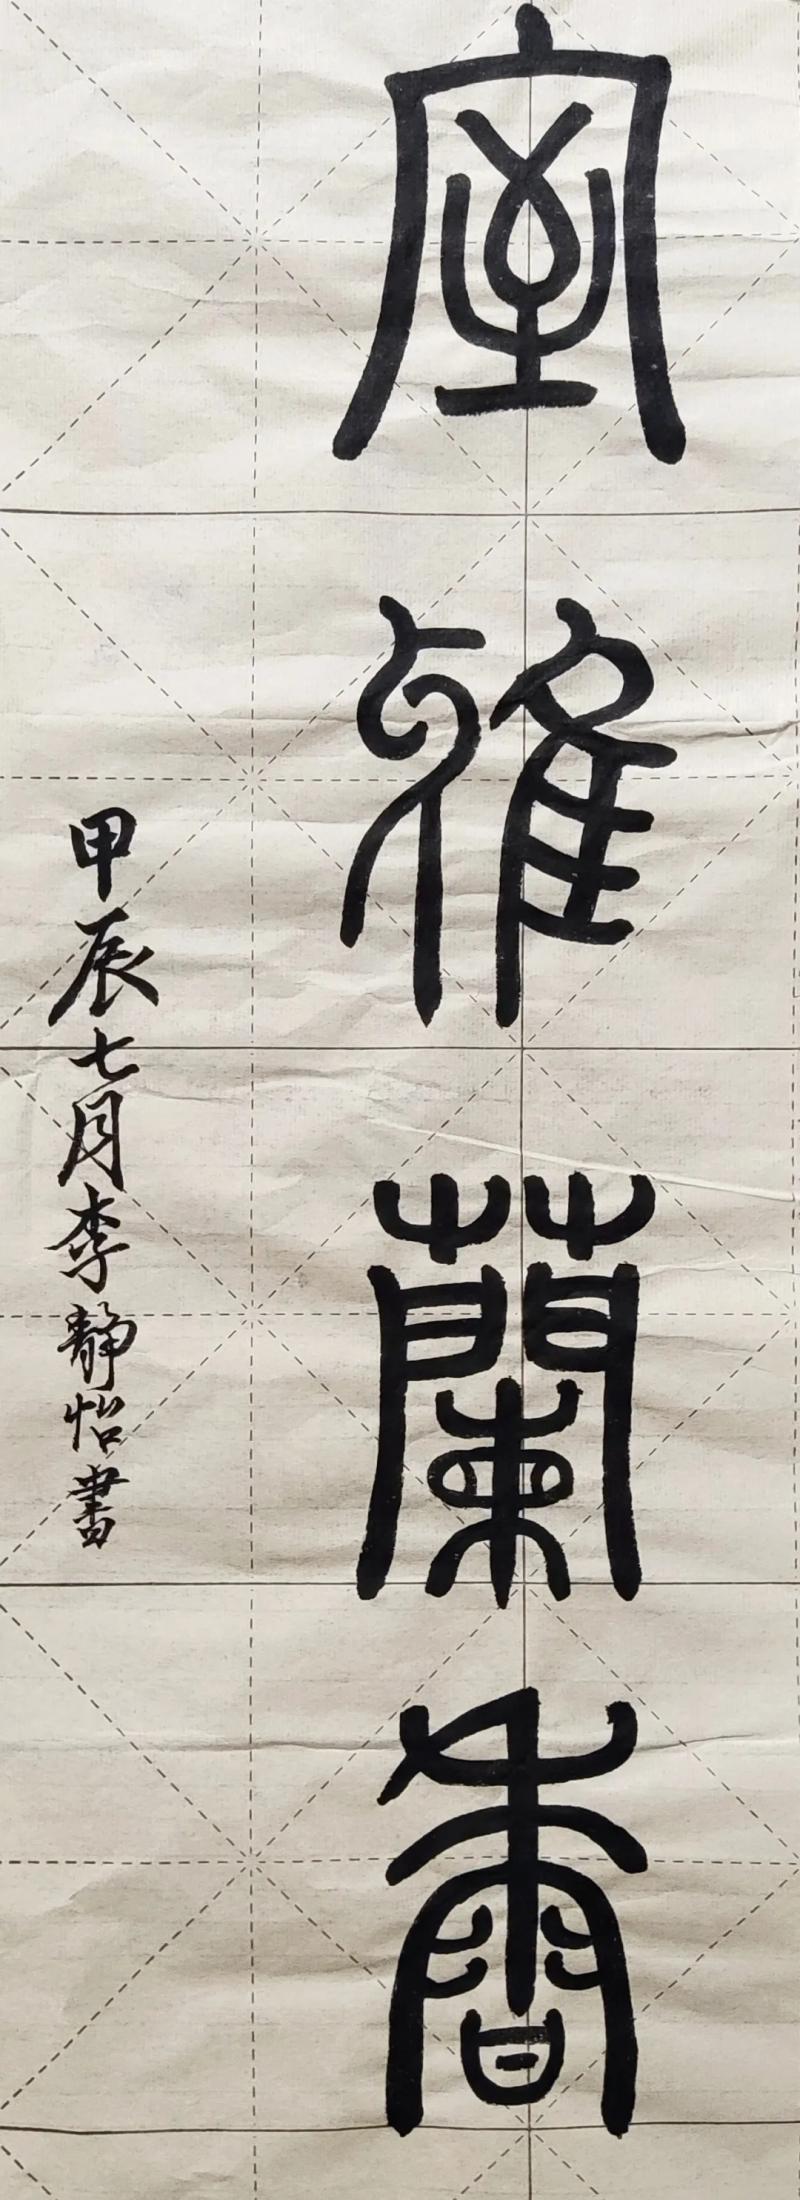 室雅蘭香
甲辰七月李靜怡書